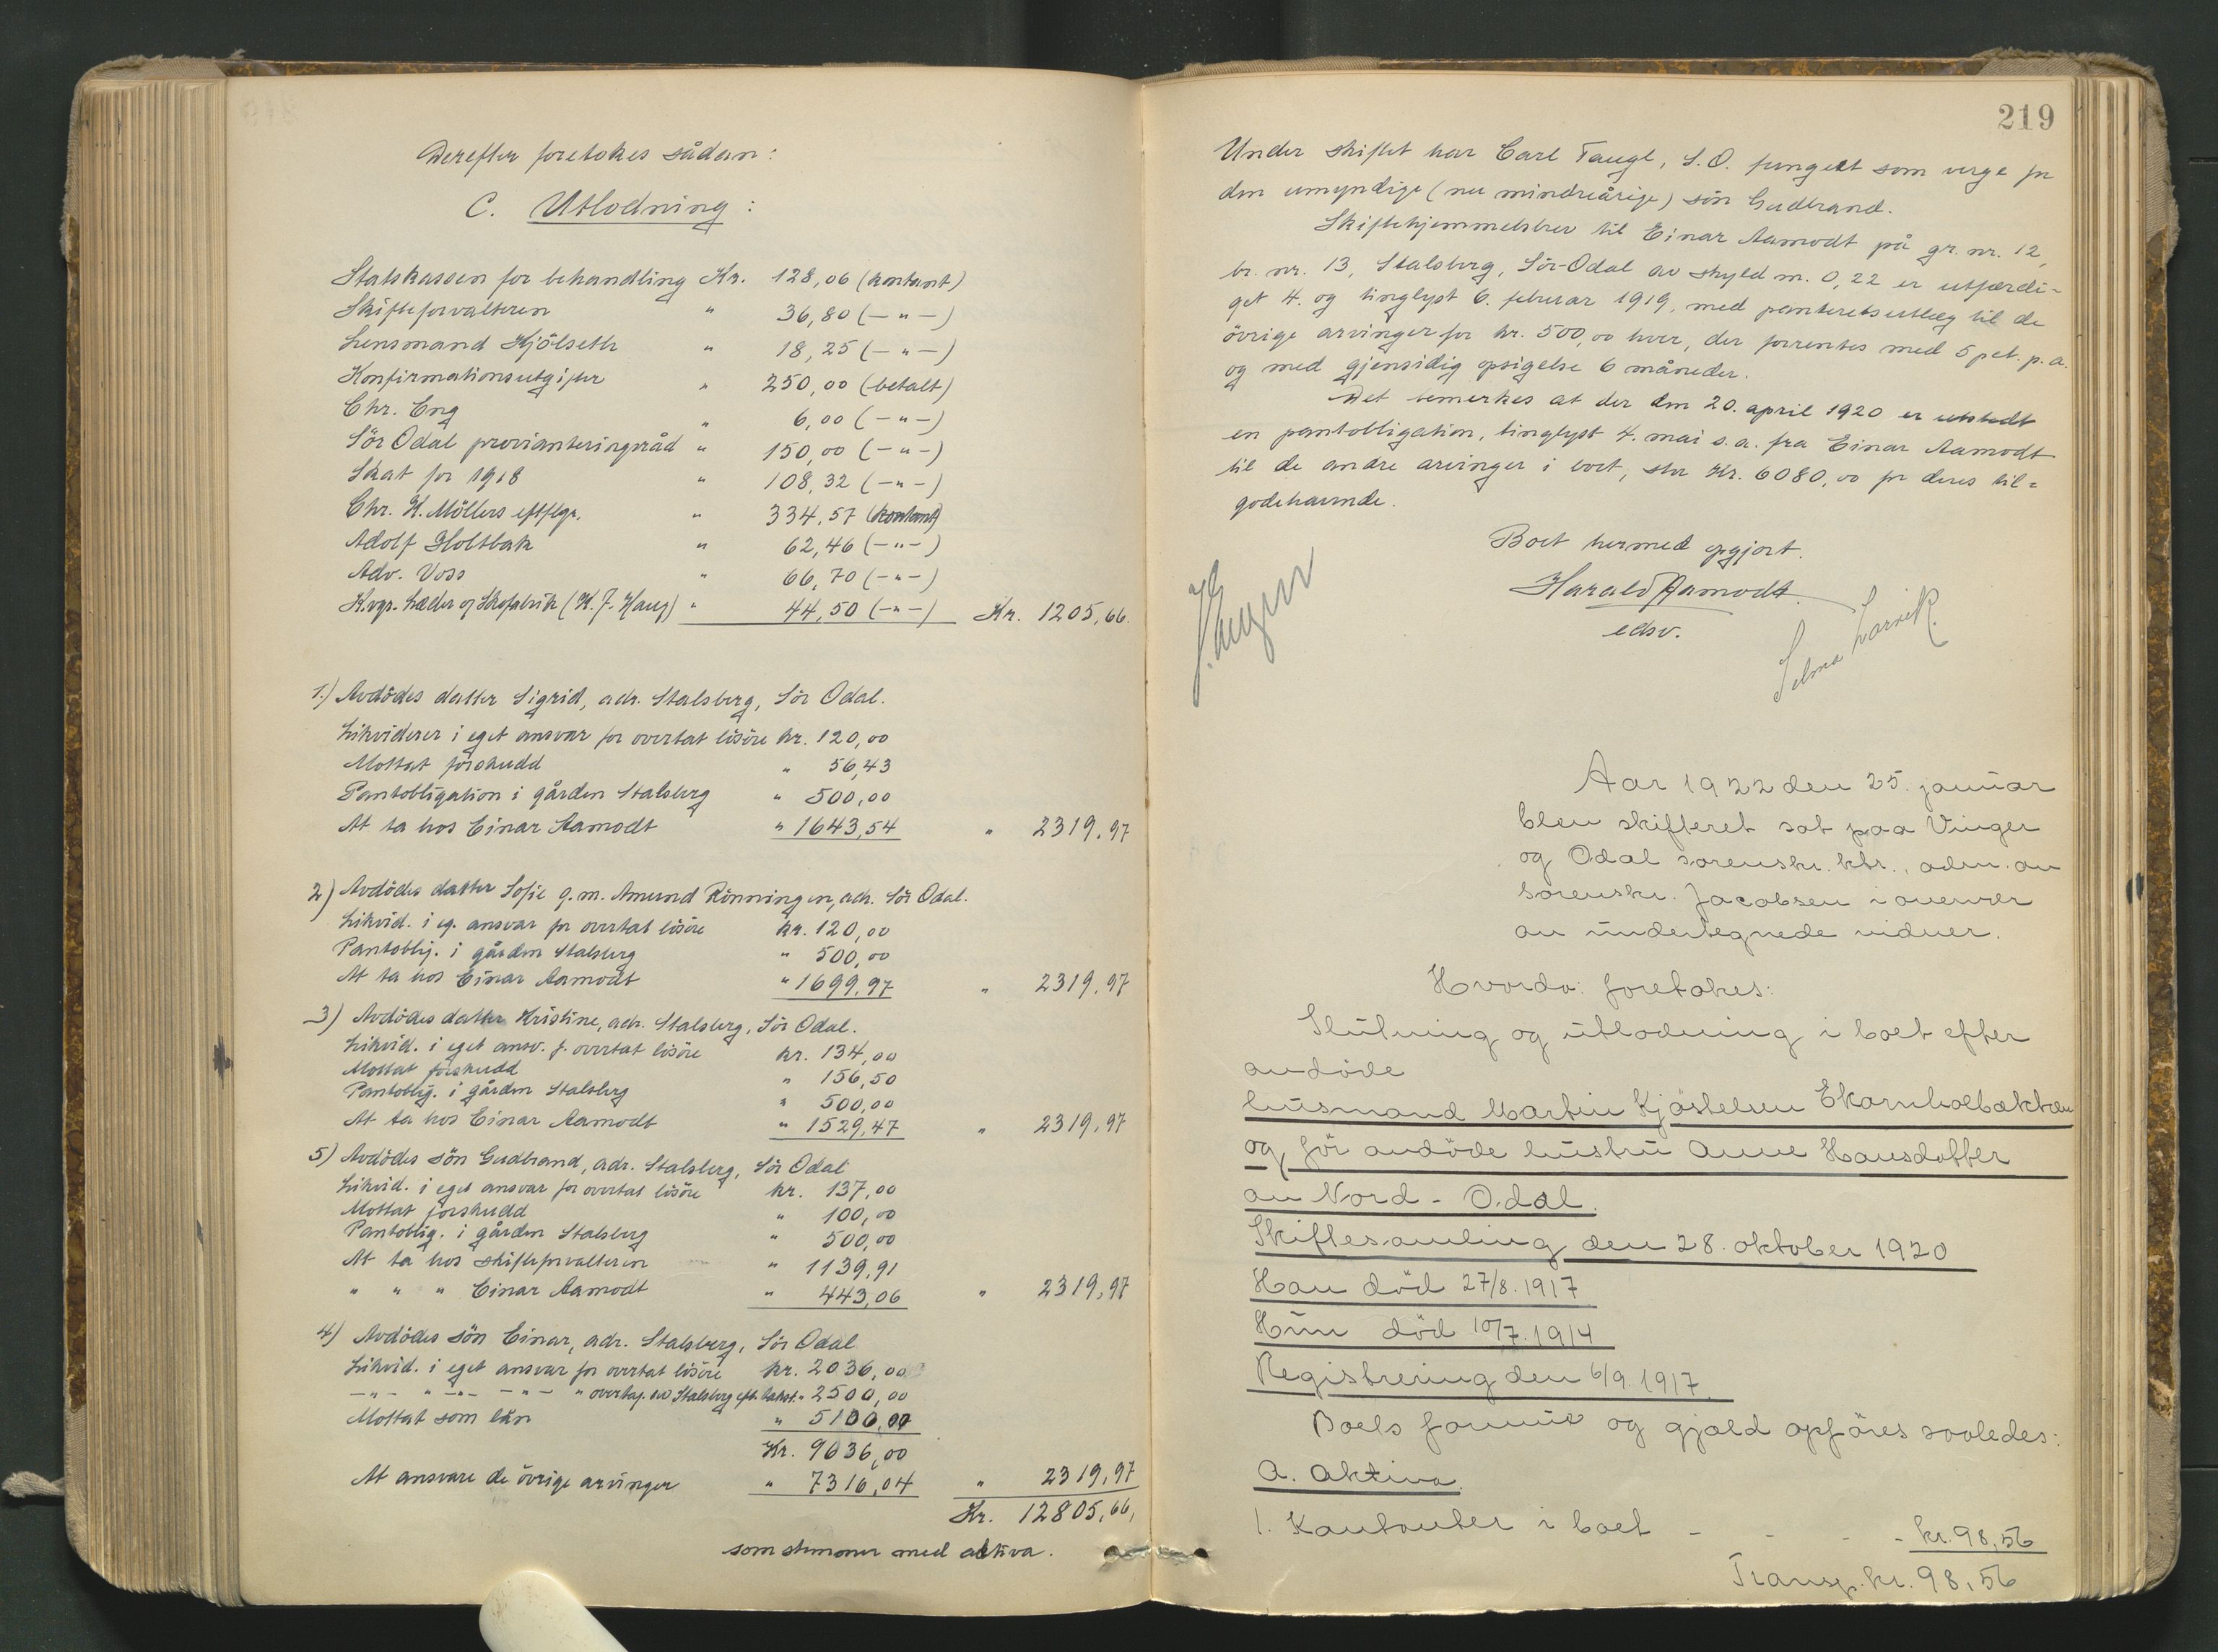 Derefter foretokes sådan:
C. Utlodning:
Statskassen for behandling Kr. 128,06 (kontant)
Skifteforvalteren " 36,80 (-"-)
Lensmand Kjölseth " 18,25 (-"-)
Konfirmationsutgifter " 250,00 (betalt)
Chr. Eng " 6,00 (-"-)
Sör Odal provianteringsråd " 150,00 (-"-)
Skat for 1918 " 108,32 (-"-)
Chr. H. Möllers eftflgr. " 334,57 (kontant)
Adolf Holtbak " 62,46 (-"-)
Adv. Voss " 66,70 (-"-)
Kvgs. Læder og Skofabrik (K. F. Haug) " 44,50 (-"-) Kr. 1205,66.
1.) Avdödes datter Sigrid, adr. Stalsberg, Sör Odal.
Likviderer i eget ansvar for overtat lösöre kr. 120,00
Mottat forskudd " 56,43
Pantobligation i gården Stalsberg " 500,00
At ta hos Einar Aamodt " 1643,54 " 2319,97
2) Avdödes datter Sofie g.m. Amund Rönningen, adr. Sör Odal.
Likvid. i eg. ansvar for overtat lösöre kr. 120,00
Pantoblig. i gården Stalsberg " 500,00
At ta hos Einar Aamodt " 1699,97 " 2319,97
3) Avdödes datter Kristine, adr. Stalsberg, Sör Odal.
Likvid. i eget ansv. f. overtat lösöre kr. 134,00
Mottat forskudd " 156,50
Pantoblig. i gården Stalsberg " 500,00
At ta hos Einar Aamodt " 1529,47 " 2319,97
5) Avdödes sön Gudbrand, adr. Stalsberg, Sör Odal
Likvid. i eget ansvar for overtat lösöre kr. 137,00
Mottat forskudd " 100,00
Pantoblig. i gården Stalsberg " 500,00
At ta hos skifteforvalteren " 1139,91
" " " Einar Aamodt " 443,06 " 2319,97
4) Avdödes sön Einar, adr. Stalsberg, Sör Odal
Likvid. i eget ansvar for overtat lösöre kr. 2036,00
-"- " -"- -"- " overtag. av Stalsberg eft. takst. " 2500,00
Mottat som lån " 5100,00
Kr. 9636,00
At ansvare de övrige arvinger " 7316,04 " 2319,97
Kr. 12805,66,
som stemmer med aktiva.
219
Under skiftet har Carl Taugl, S.O. fungert som verge for
den umyndige (nu mindreårige) sön Gudbrand.
Skiftehjemmelsbrev til Einar Aamodt på gr. nr. 12,
br. nr. 13, Stalsberg, Sör-Odal av skyld m. 0,22 er utfærdi-
get 4. og tinglyst 6. februar 1919, med panteretsutlæg til de
övrige arvinger for kr. 500,00 hver, der forrentes med 5 pct. p.a.
og med gjensidig opsigelse 6 måneder.
Det bemerkes at der den 20. april 1920 er utstedt
en pantobligation, tinglyst 4. mai s.a. fra Einar Aamodt
til de andre arvinger i boet, stor kr. 6080,00 for deres til=
godehavende.
Boet hermed opgjort.
Harald Aamodt
edsv.
Selma Larvik.
Aar 1922 den 25. januar
blev skifteret sat paa Vinger
og Odal sorenskr. ktr., adm. av
sorenskr. Jacobsen i overvær
av undertegnede vidner.
Hvorda: foretokes:
Slutning og utlodning i boet efter
avdöde
husmand Martin Kjöstelsen Ekornholbækken
og för avdöde hustru Anne Hansdotter
av Nord-Odal.
Skiftesamling den 28. oktober 1920
Han död 27/8.1917
Hun död 10/7.1914
Registrering den 6/9.1917.
Boets formue og gjæld opföres saaledes:
A. Aktiva.
1. Kontanter i boet - - - - kr. 98,56
Transp. kr. 98,56